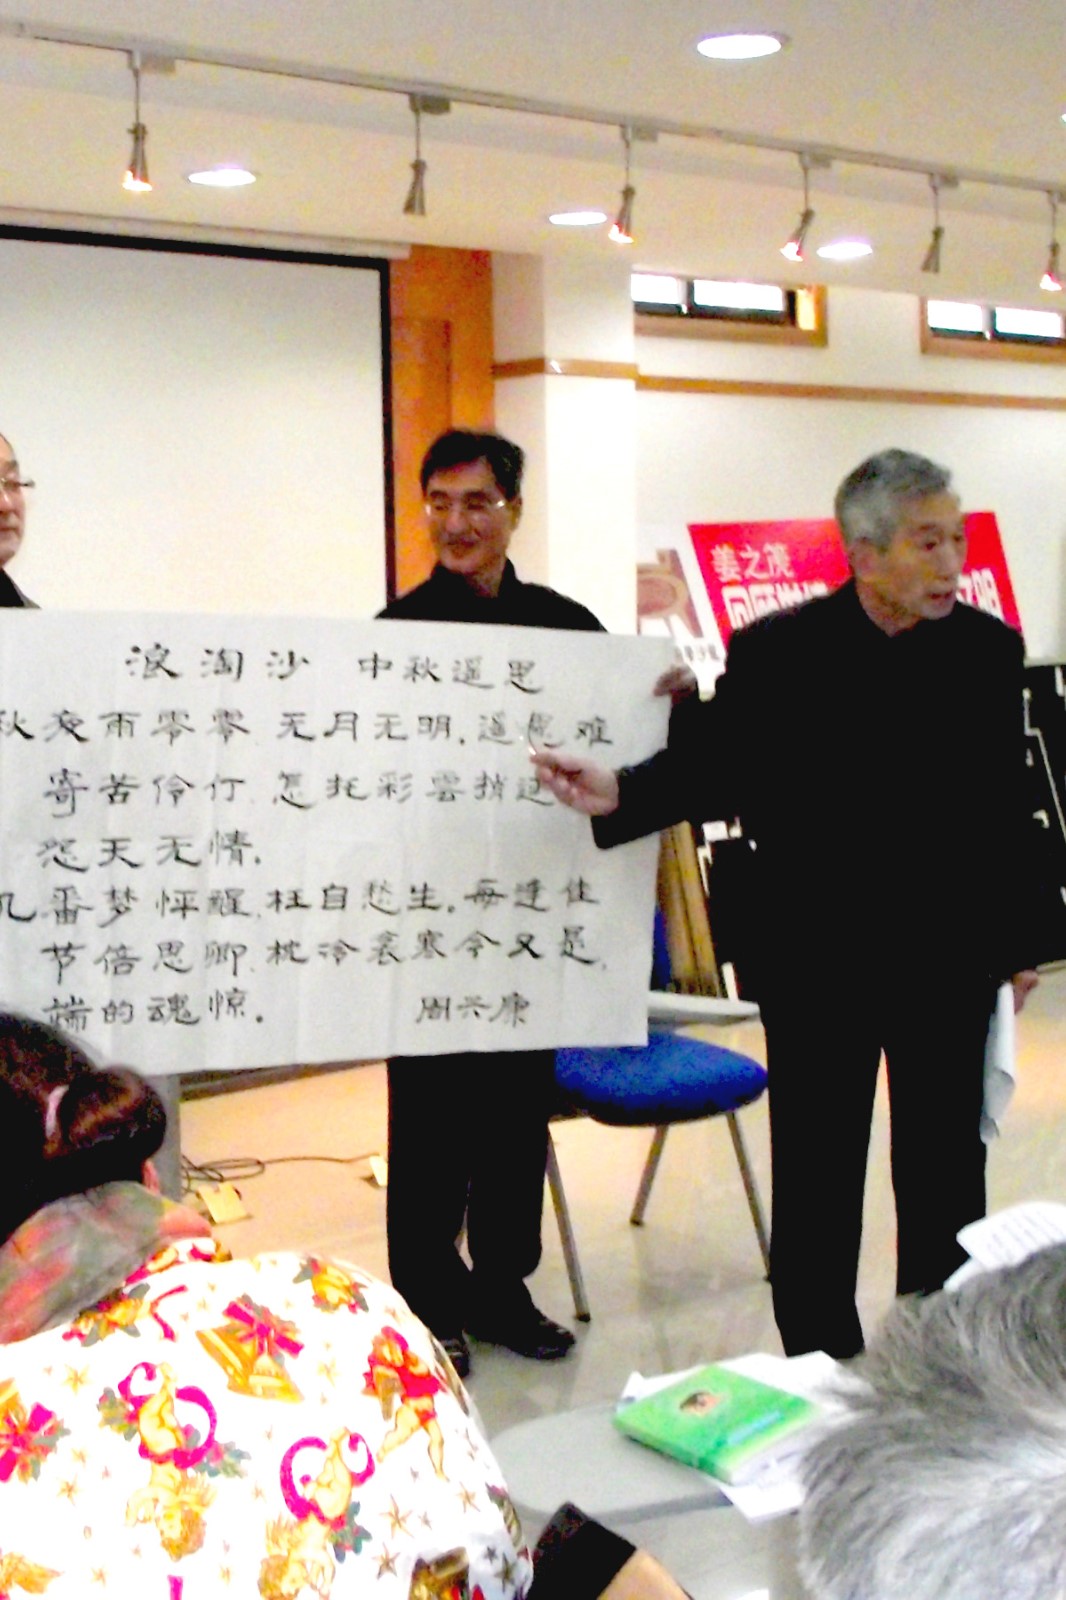 浪淘沙 中秋遥思
秋夜雨零零.无月无明.遥思难
寄苦伶仃.怎托彩雲捎过
怨天无情.
几番梦怦醒.枉自愁生.每逢佳
节倍思卿.枕冷衾寒今又是,
端的魂惊.
周兴康
姜之茂
回顾
明